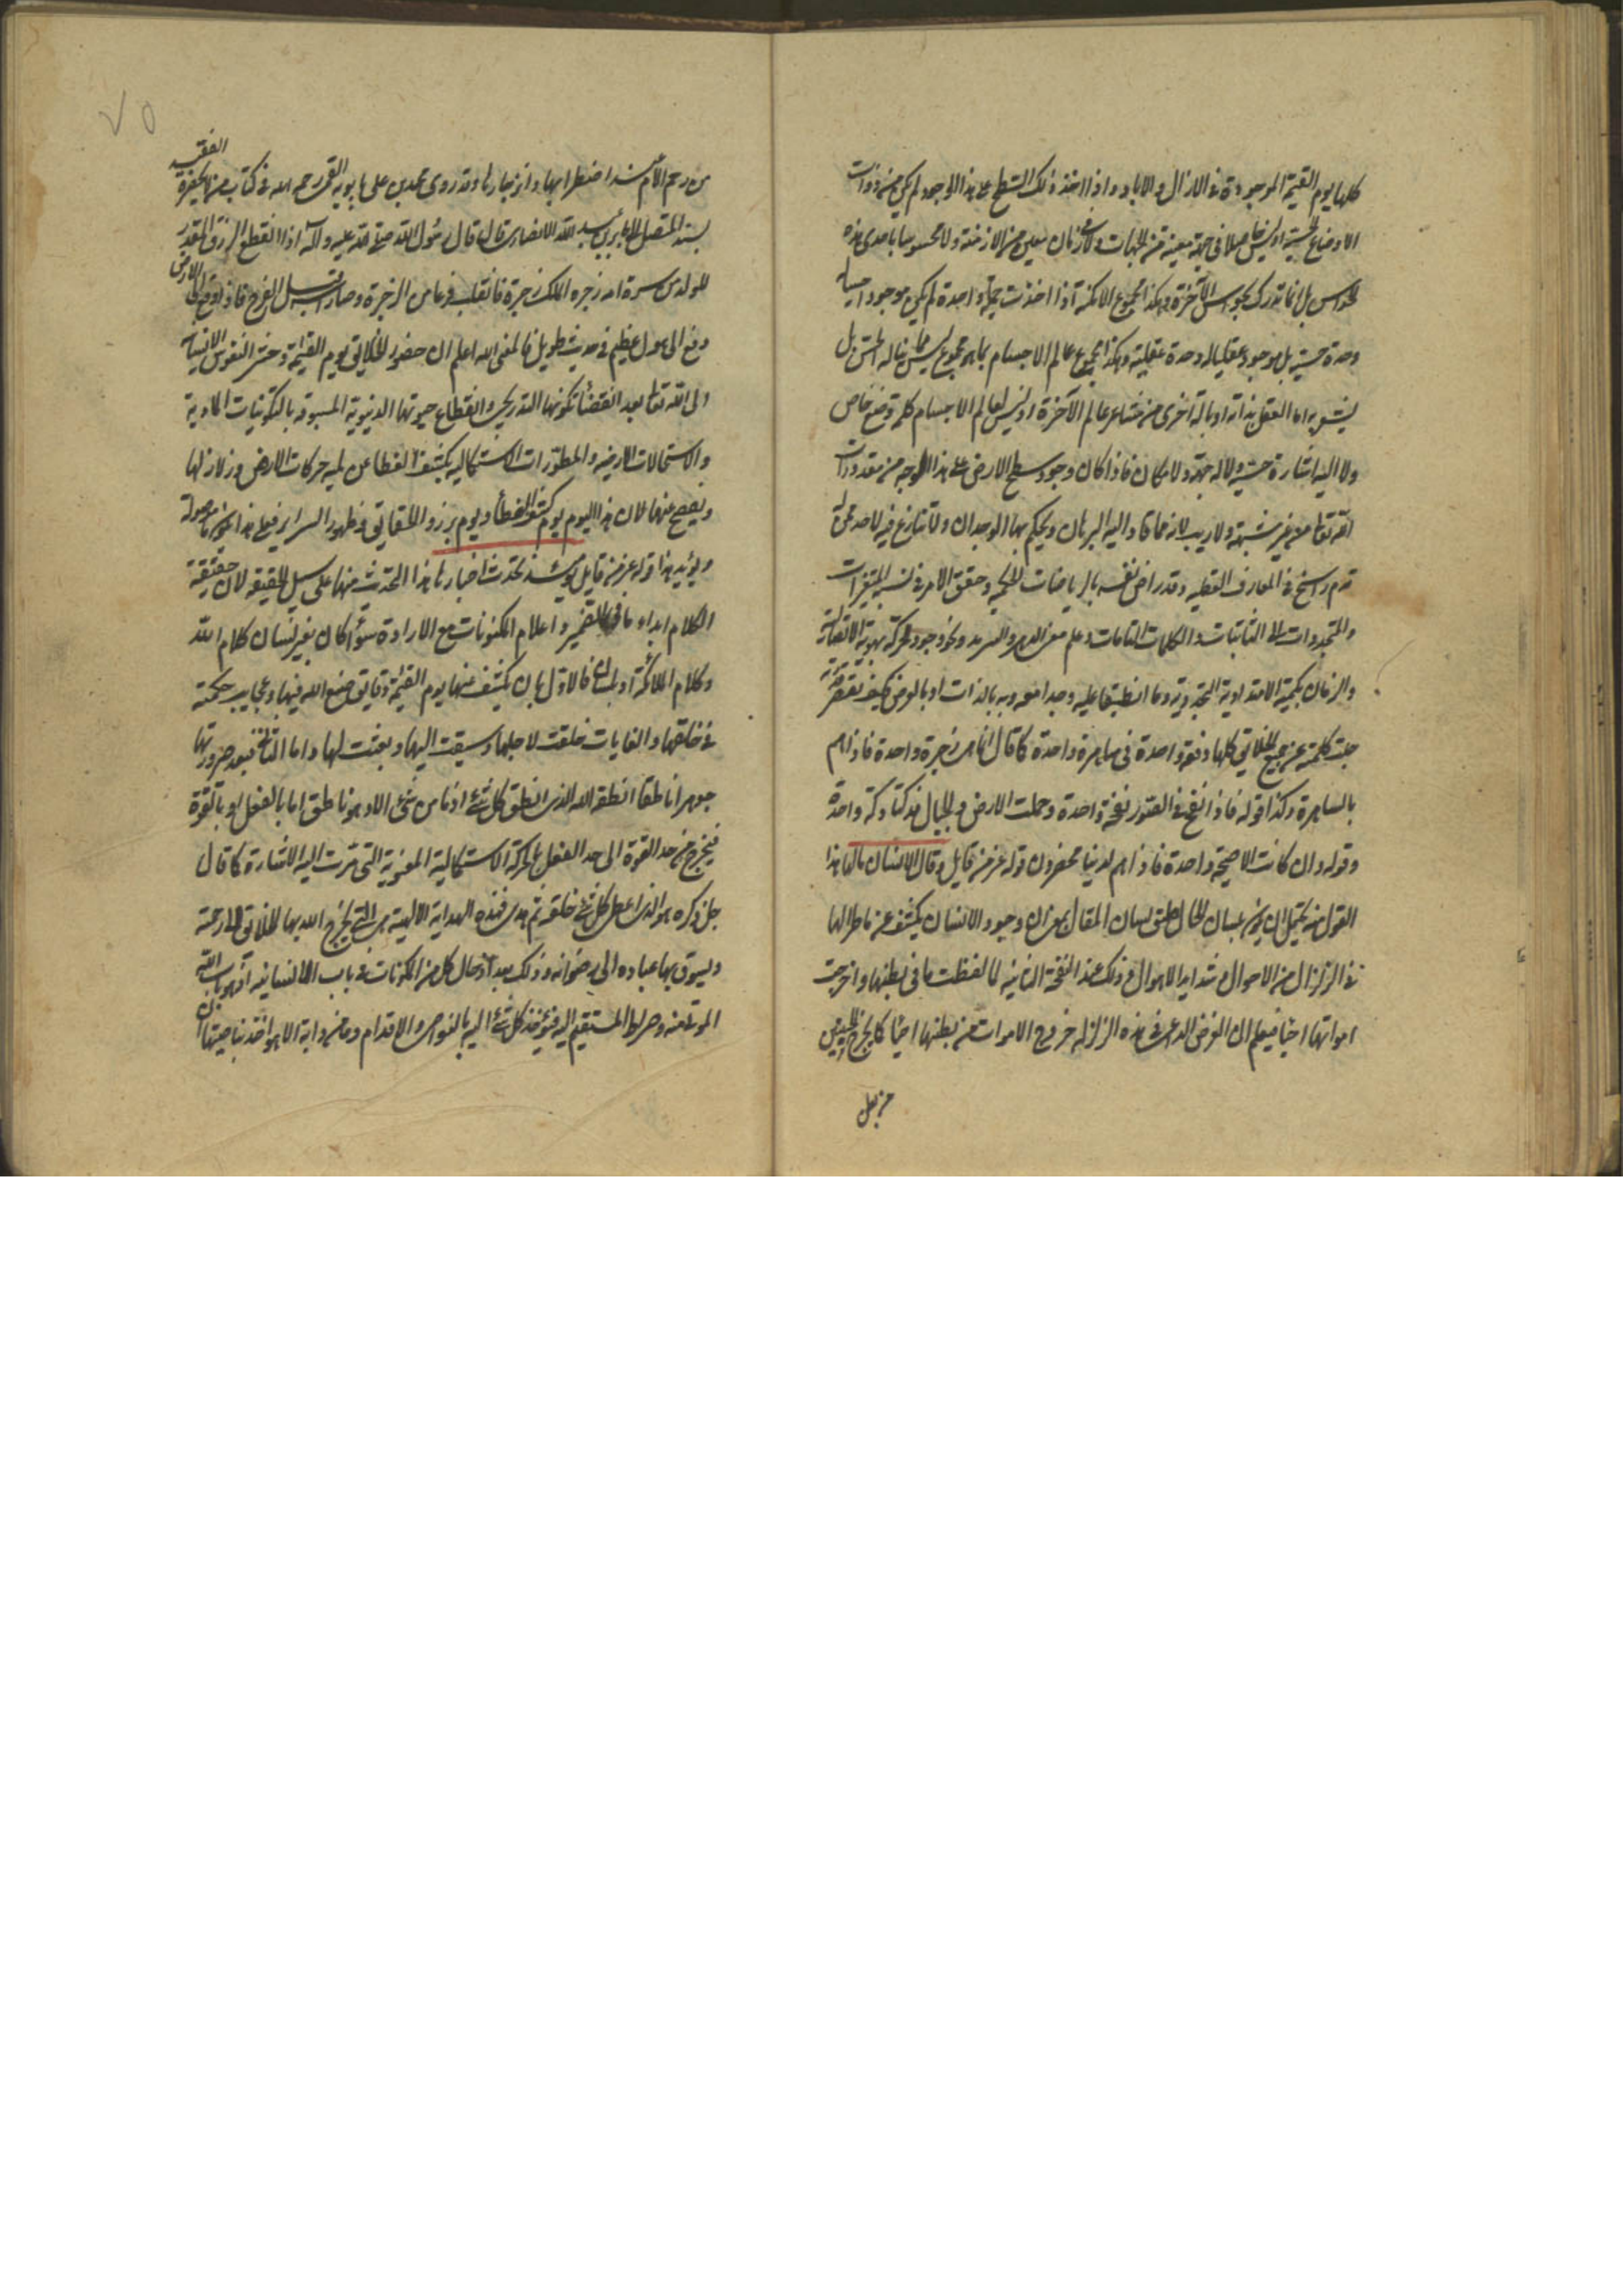 كلها يوم القيمة الموجودة فى الازال و الاباد و اذا اخذ ذلك السطح على هذا الوجه لم يكن من ذوات
الاوضاع الحسية اوليس حاصلا فى جهة معينة من الجهات ولا فى زمان معين من الازمنة ولا محسوسا باحدى هذه
الحواس بل انما تدرك بحواس الآخرة وهكذا مجموع الامكنة اذا اخذت جملة واحدة لم يكن موجودا حسيا له
وحدة حسية بل موجود عقليا له وحدة عقلية وهكذا مجموع عالم الاجسام بما هو مجموع ليس مما يناله الحس بل
يشعر به اما العقل بذاته او بآلة اخرى من مشاعر عالم الآخرة او ليس لعالم الاجسام كله وضع خاص
ولا اليه اشارة حسية ولا له جهة ولا مكان فاذا كان وجود سطح الارض على هذا الوجه من مقدورات
الله تعالى من غير شبهة ولا ريب لانه مما قاد اليه البرهان ويحكم بها الوجدان ولا تنازع فيه لاحد ممن له
قدم راسخ فى المعارف العقلية وقد راض نفسه بالرياضات الحكمية وحقق الامر فى نسبة المتغيرات
والمتجددات الى الثابتات والكلمات التامات وعلم معنى الدهر والسرمد ونحو وجود الحركة بهويتها الاتصالية
والزمان بكميته الامتدادية التجددية وما انطبقا عليه وجدا معه وبه بالذات او بالعرض كيف
جلت كلمته عن جميع الخلائق كلها دفعة واحدة فى ساهرة واحدة كما قال انما هى زجرة واحدة فاذا هم
بالساهرة وكذا قوله فاذا نفخ فى الصور نفخة واحدة وحملت الارض و الجبال فدكتا دكة واحدة
وقوله وان كانت الا صيحة واحدة فاذا هم لدينا محضرون قوله عز من قايل وقال الانسان مالها هذا
القول منه يحتمل ان يكون بلسان الحال طبق لسان المقال بمعنى ان وجود الانسان يكشف عن ما طرا لها
فى الزلزال من الاحوال و شدايد الاهوال و ذلك عند النفخة الثانية لما لفظت ما فى بطنها و اخرجت
امواتها احيا فيعلم ان الغرض الداعى فى هذه الزلزلة خروج الاموات من بطنها احيا كما يخرج الجنين
من بطن
٧٥
الفقيه
من رحم الأم عند اضطرابها و انزجارها وقد روى محمد بن على بابويه القمى رحمه الله فى كتاب من لا يحضره
بسنده المتصل الى جابر بن عبد الله الانصارى قال قال رسول الله صلى الله عليه وآله اذا انقطع الرزق المقدر
للولد من سرة امه زجره الملك زجرة فانقلب فزعا من الزجرة وصار راسه قبل الفرج فاذا وقع الى الارض
وقع الى هول عظيم فى حديث طويل فالمعنى الله اعلم ان حضور الخلائق يوم القيمة وحشر النفوس الانسانية
الى الله تعالى بعد انقضاء تكونها التدريجى وانقطاع حيوتها الدنيوية المسبوقة بالتكوينات المادية
والاستحالات الارضية والتطورات الاستكمالية يكشف الغطا عن لمية حركات الارض وزلازلها
ويفصح عنها لان هذا اليوم يوم كشف الغطأ ويوم بروز الحقايق و ظهور السراير فعلى هذا يكون ما موصولة
ويؤيد هذا قوله عز من قايل يومئذ تحدث اخبارها هذا التحدث منها على سبيل الحقيقة لان حقيقة
الكلام ابداء ما فى الضمير و اعلام المكنونات مع الارادة سوأ كان بغير لسان ككلام الله
وكلام الملائكة او بلسان فالاول بان يكشف عنها يوم القيمة دقايق صنع الله فيها وعجايب حكمته
فى خلقها و الغايات خلقت لاجلها وسيقت اليها وبعثت لها واما الثانى فبعد ضرورتها
جوهرا ناطقا انطقه الله الذى انطق كل شئ اذ ما من شئ الا وهو ناطق اما بالفعل او بالقوة
فيخرج من حد القوة الى حد الفعل بالحركة الاستكمالية المعنوية التى مرت اليه الاشارة كما قال
جل ذكره هو الذى اعطى كل شئ خلقه ثم هدى فهذه الهداية الالهية هى التى يخرج الله بها الخلائق الى رحمته
ويسوق بها عباده الى رضوانه و ذلك بعد ادخال كل من المكونات فى باب الانسانية اذ هو باب الله
الموتى منه وصراط المستقيم اليه فيؤخذ كل شئ اليه بالنواصى والاقدام وما من دابة الا هو اخذ بناصيتها ان